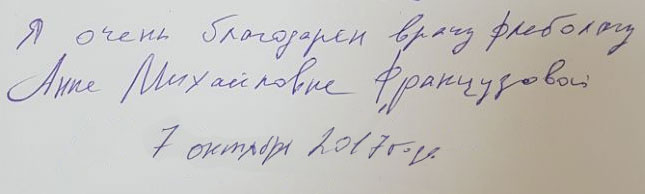 Я очень благодарен врачу флебологу
Анне Михайловне Французовой
7 октября 2017 года